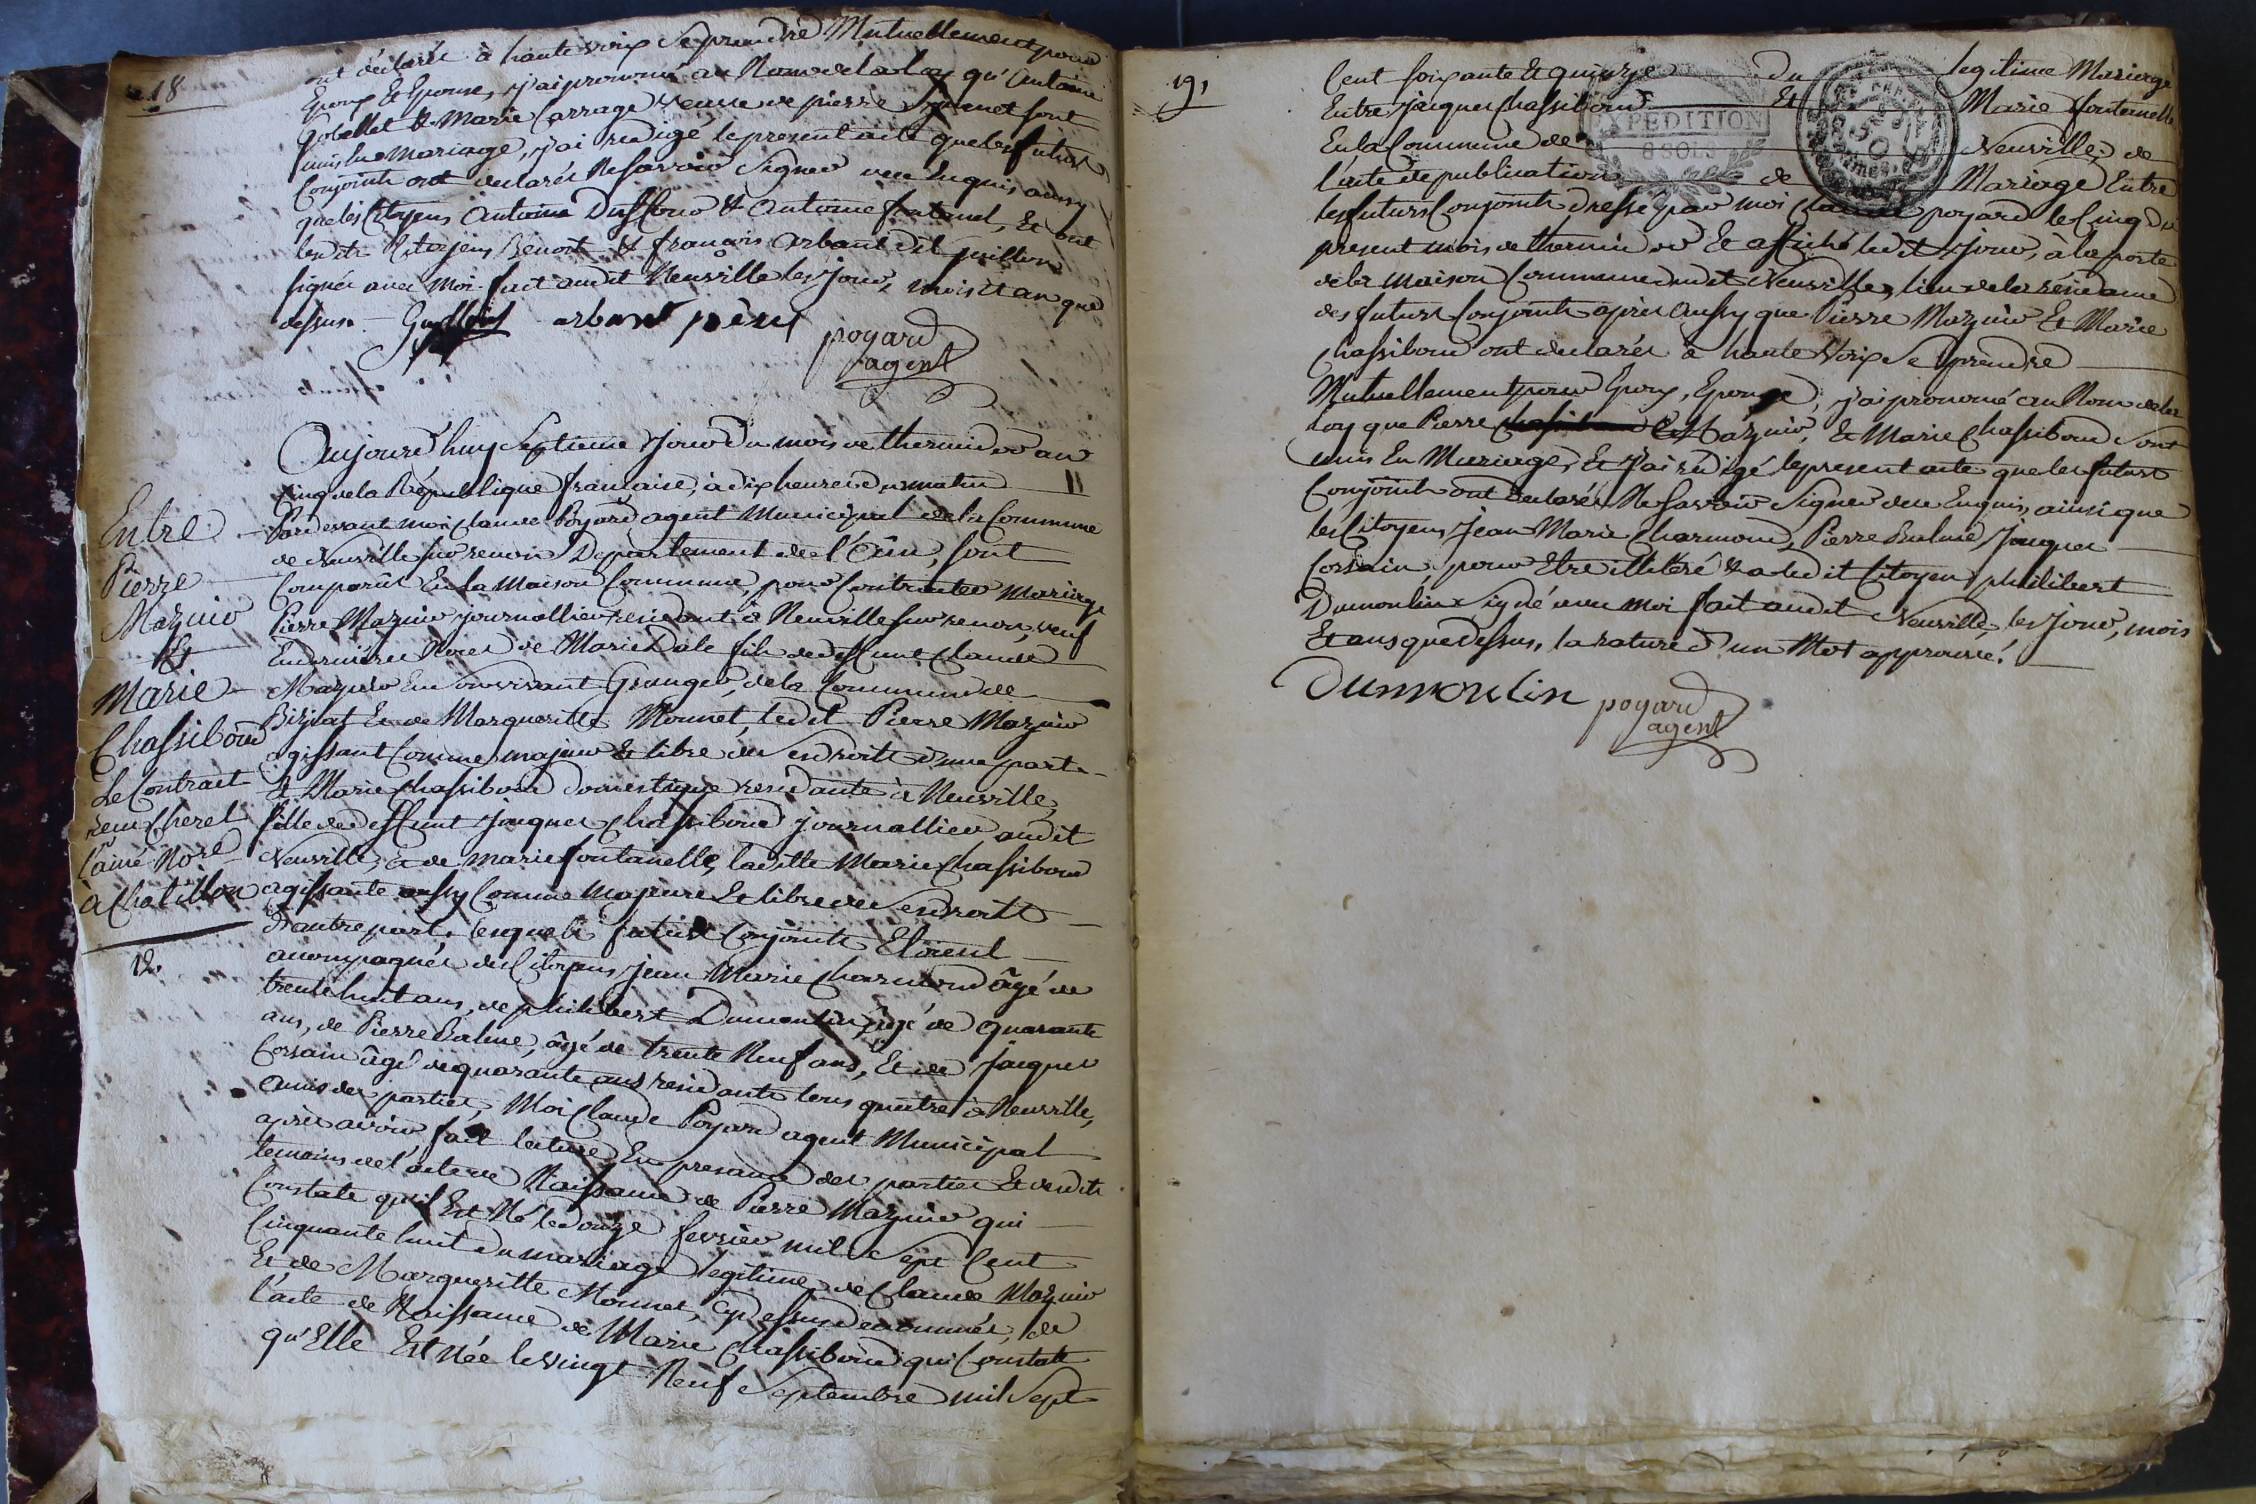 18
ont déclarés à haute voix se prendre Mutuellement pour
Epoux Et Epouse, j'ai prononcé au Nom de la Loy qu'Antoine
Gobellet & Marie Carrage veuve de pierre sont
unis En Mariage, j'ai redigé le present acte que les futurs
Conjoints ont declarés Ne savoir Signer de ce Enquis, ainsy
que les Citoyens Antoine Duffour & Antoine fontanel, Et ont
lesdits Citoyens Benoit & françois arbant dit
signés avec Moi fait audit Neuville les Jour, mois Et an que
dessus. arbant
poyard
agent
Aujourd'huy Septieme Jour du mois de thermidor an
Cinq de la République francaise, à dix heures du matin
Pardevant moi Claude Poyard agent Municipal de la Commune
de Neuville sur renon Département de l'Ain, sont
Comparus En la Maison Commune, pour Contracter Mariage
Pierre Mazuir journallier residant à Neuville sur renon, veuf
En dernières Noces de Marie Dale fils de deffunt Claude
Mazuir En son vivant Granger, de la Commune de
Biziat Et de Margueritte Monnet, ledit Pierre Mazuir
agissant Comme majeur & libre de ses droits d'une part
& Marie Chassiboud domestique residante à Neuville,
fille de deffunt Jaques Chassiboud journallier audit
Neuville, & de marie fontanelle, laditte Marie Chassiboud
agissante aussy Comme Majeure Et libre de ses droits
d'autre part, lesquels futurs Conjoints Etoient
accompagnés des Citoyens Jean Marie Charmond âgé de
trente huit ans, de philibert Dumoulin, âgé de quarante
ans, de Pierre Balme, âgé de trente Neuf ans, Et de Jacques
Corsain âgé de quarante ans residants tous quatre à Neuville,
amis des parties, Moi Claude Poyard agent Municipal
après avoir fait lecture En presance des parties Et desdits
temoins de l'acte de Naissance de Pierre Mazuir qui
Constate qu'il Est Né le douze fevrier mil Sept Cent
Cinquante huit du mariage legitime de Claude Mazuir
Et de Margueritte Monnet, Cy dessus denommés, de
l'acte de Naissance de Marie Chassiboud qui Constate
qu'Elle Est Née le vingt Neuf Septembre mil Sept
Entre
Pierre
Mazuir
&
Marie
Chassiboud
Le Contrait
reçu Cheret
l'ainé Nore
à Chatillon
12.
19,
Cent soixante Et quinze du legitime Mariage
Entre Jacques Chassiboud Et Marie fontenelle
En la Commune de Neuville, de
l'acte de publication de Mariage Entre
les futurs Conjoints dressé par moi Claude poyard le Cinq du
present mois de thermidor Et affiché ledit Jour, à la porte
de la maison Commune dudit Neuville, lieu de la résidance
des futurs Conjoints après aussy que Pierre Mazuir Et Marie
Chassiboud ont declarés à haute voix se prendre
Mutuellement pour Epoux, Epouse, j'ai prononcé au Nom de la
Loy que Pierre Mazuir, Et Marie Chassiboud sont
unis En Mariage, Et J'ai redigé le present acte que les futurs
Conjoints ont declarés Ne Savoir Signer de ce Enquis, ainsi que
les Citoyens Jean Marie Charmond, Pierre Balme, Jaques
Corsain, pour Etre illitéré & a ledit Citoyen philibert
Dumoulin signé avec moi fait audit Neuville, les Jour, mois
Et ans que dessus, la rature d'un Mot approuvé.
Dumoulin
poyard
agent
EXPEDITION
8 SOLS